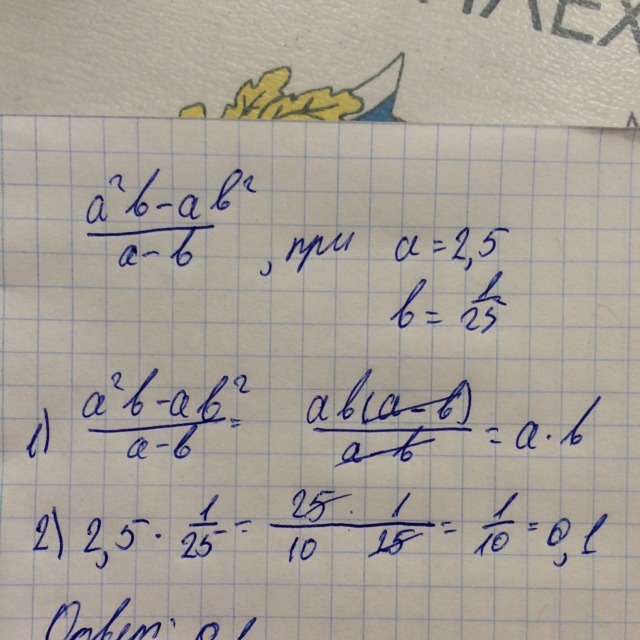 ИЛЕХ
a²b-ab²/a-b, при a=2,5
b=1/25
1) a²b-ab²/a-b = ab(a-b)/a-b = a·b
2) 2,5·1/25=25·1/10 25=1/10=0,1
Ответ: 0,1